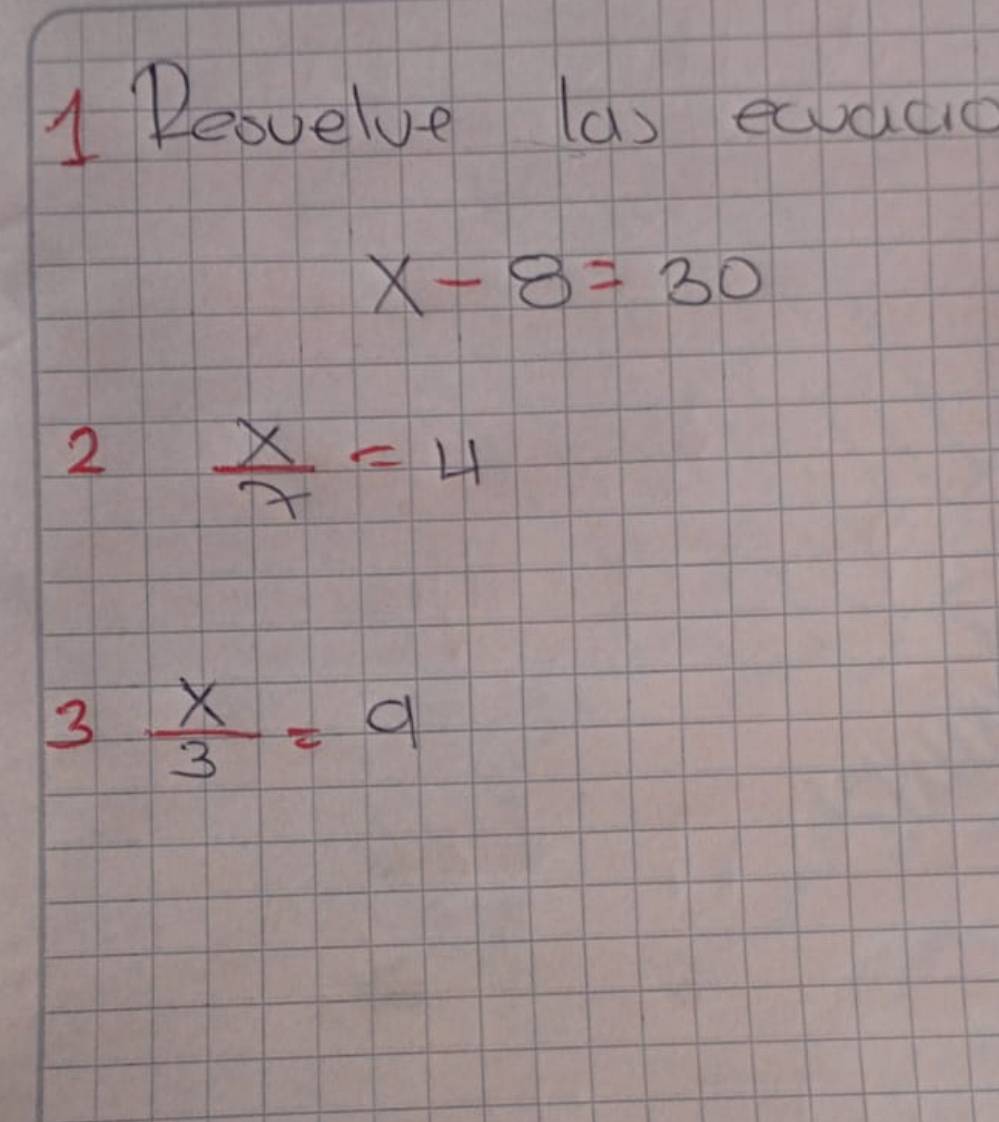 1 Resuelve las ecuacio
x - 8 = 30
2 x/7 = 4
3 x/3 = 9